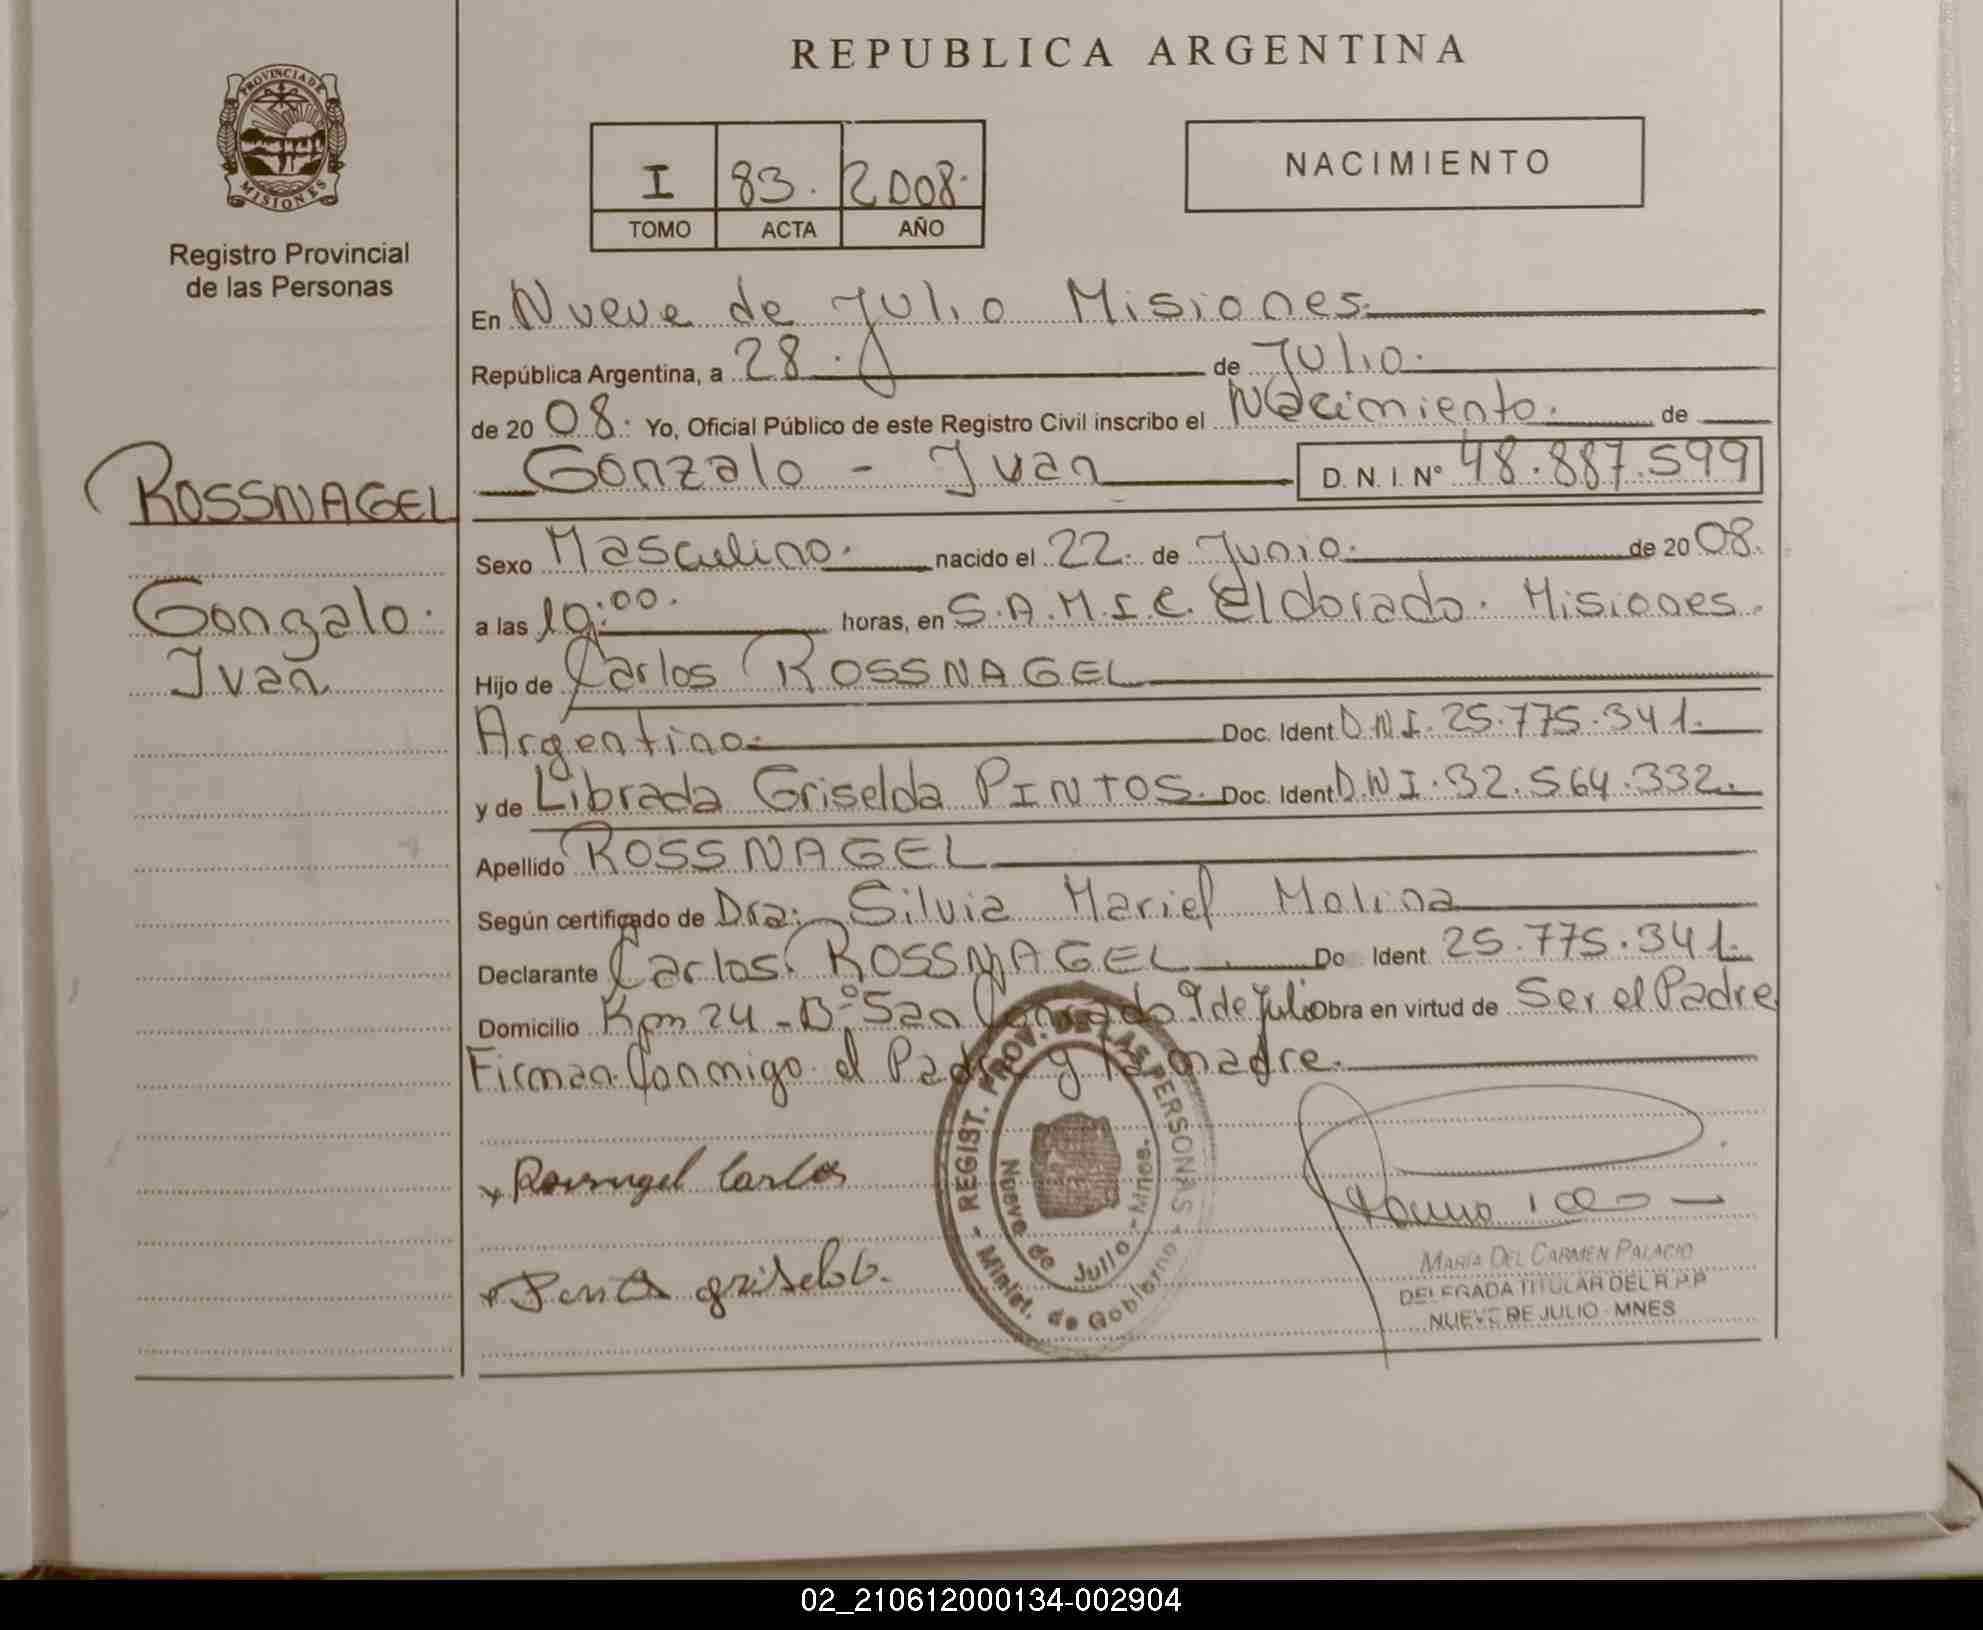 REPUBLICA ARGENTINA
PROVINCIA DE MISIONES
Registro Provincial
de las Personas
I 83. 2008.
TOMO ACTA AÑO
NACIMIENTO
En Nueve de Julio Misiones.
República Argentina, a 28. de Julio.
de 20 08. Yo, Oficial Público de este Registro Civil inscribo el Nacimiento. de
Gonzalo - Ivan D. N. I. Nº 48.887.599
ROSSNAGEL
Gonzalo.
Ivan
Sexo Masculino. nacido el 22. de Junio. de 20 08.
a las 19:00. horas, en S.A.M.I.C. Eldorado. Misiones.
Hijo de Carlos ROSSNAGEL
Argentino. Doc. Ident D.N.I. 25.775.341.
y de Librada Griselda PINTOS. Doc. Ident D.N.I. 32.564.332.
Apellido ROSSNAGEL
Según certificado de Dra: Silvia Mariel Molina
Declarante Carlos ROSSNAGEL Do Ident. 25.775.341.
Domicilio Km 24 - Bº San Conrado 9 de Julio Obra en virtud de Ser el Padre
Firman Conmigo el Padre y la madre.
REGIST. PROV. DE LAS PERSONAS
Nueve de Julio - Mnes.
Minist. de Gobierno
Rossnagel Carlos
griselda.
MARÍA DEL CARMEN PALACIO
DELEGADA TITULAR DEL R.P.P
NUEVE DE JULIO - MNES
02_210612000134-002904